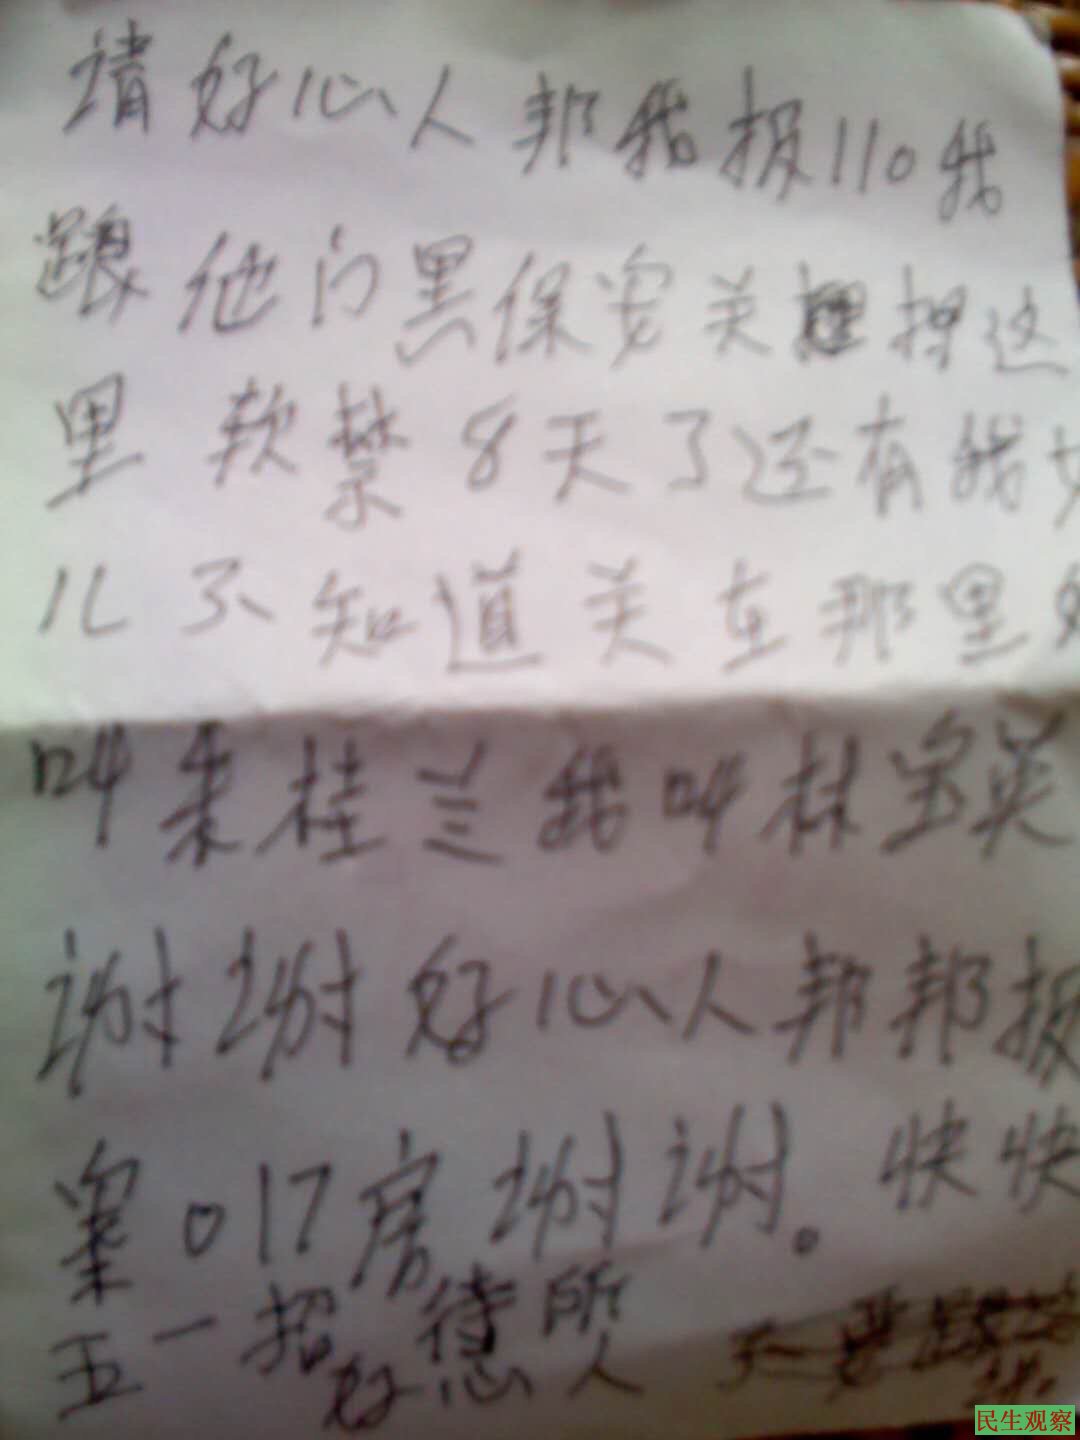 请好心人邦我报110我
跟他门黑保安关押这
里软禁8天了还有我女
儿不知道关在那里她
叫朱桂兰我叫林宝英
谢谢好心人邦邦报
案017房谢谢。快快
五一招待所
好心人
不要跟
民生观察